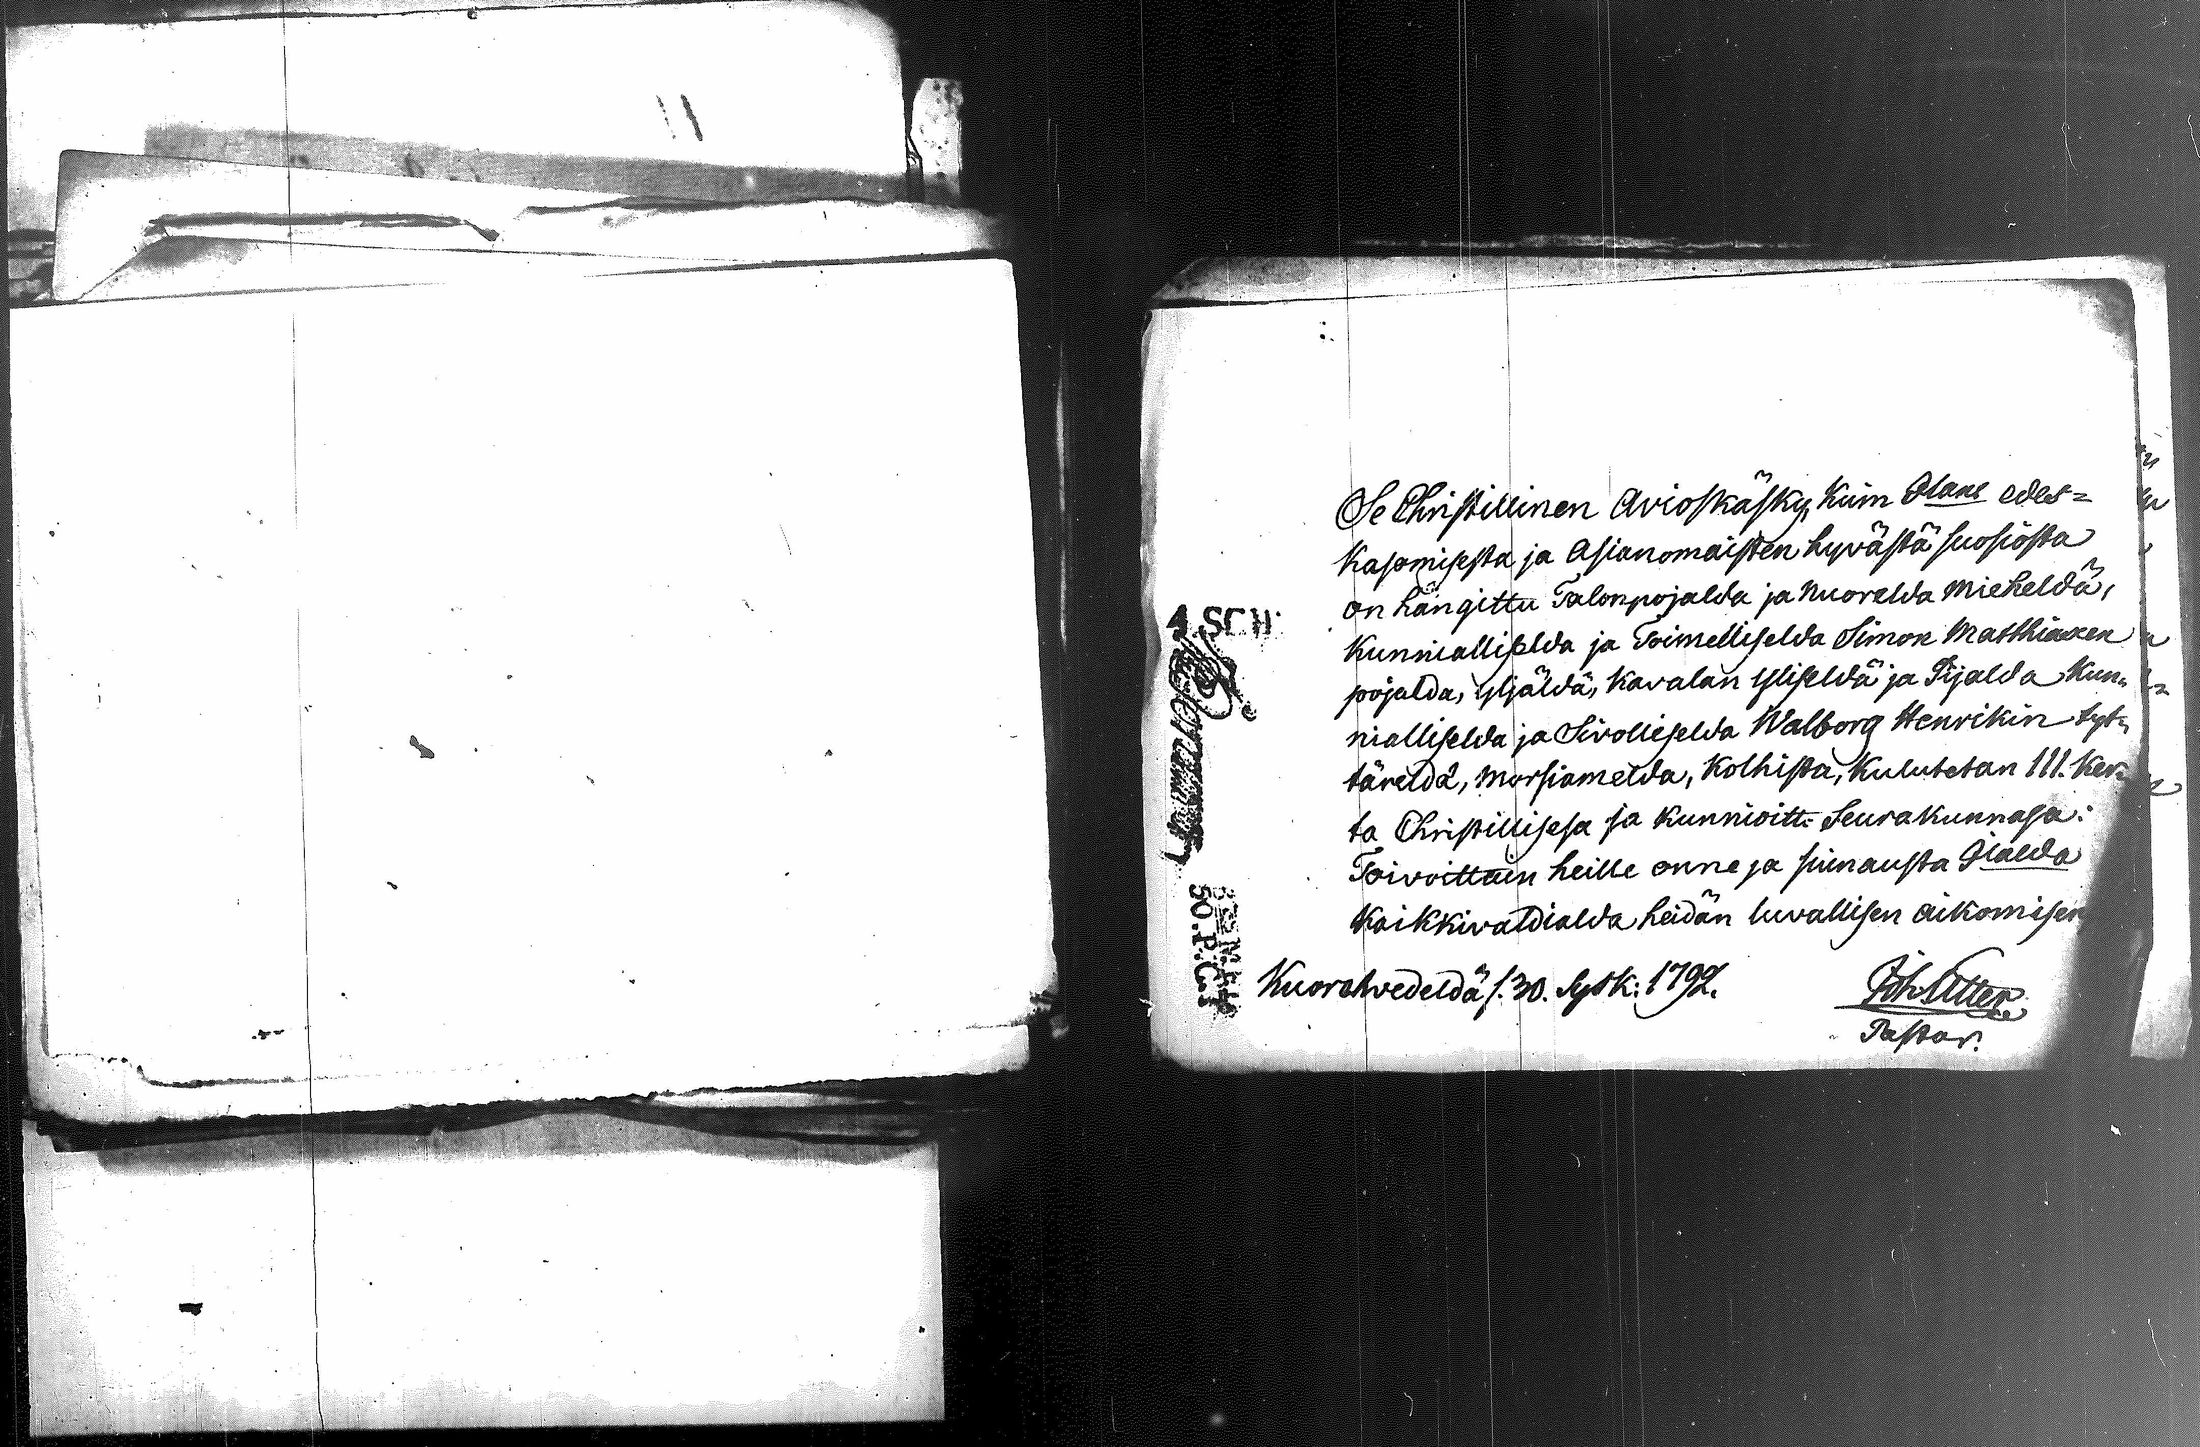 Se Christillinen Avioskäsky, kuin Olane edes=
kasomisesta ja Asianomaisten hyvästä suosiosta
on hängittu Talonpojalda ja Nuorelda Mieheldä,
Kunnialliselda ja Toimelliselda Simon Matthiaxen
pojalda, Yljäldä, Kavalan Yliseldä ja Pijalda Kun=
nialliselda ja Sivolieselda Walborg Henrikin tyt=
tärelda, Morsiamelda, Kolhista, Kulutetan III. Ker=
ta Christillisesa ja Kunnioitt: Seurakunnasa:
Toivottain heille onne ja siunausta
Kaikkivaldialda heidän luvallisen aikomisen
Kuorehvedeldä s. 30. Sysk: 1792.
Joh Utter
Pastor.
4 SCH
50. P:C:T